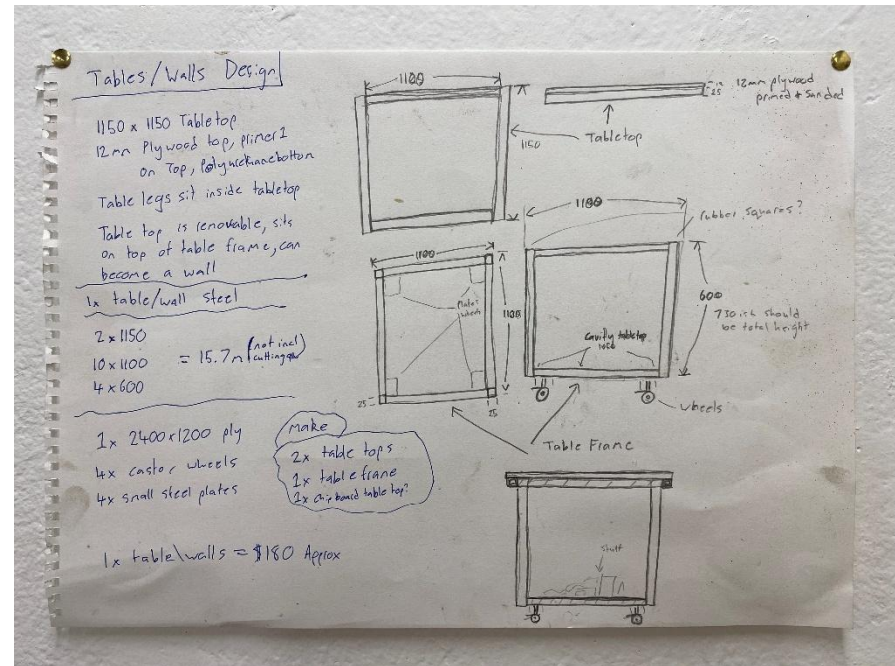 Tables/Walls Design
1150 x 1150 Tabletop
12mm Plywood top, primer
on Top, Polyurethane bottom
Table legs sit inside tabletop
Table top is removable, sits
on top of table frame, can
become a wall
1x table/wall steel
2 x 1150
10 x 1100
4 x 600
= 15.7m (not incl
cutting
1x 2400x1200 ply
4x castor wheels
4x small steel plates
make
2x table tops
1x table frame
1x chipboard table top?
1x table\walls = $180 Approx
1100
1150
Tabletop
25
12mm plywood
primed & sanded
1100
1100
Plates
wheels
25
25
1100
rubber squares?
600
730ish should
be total height
Cavity tabletop
1050
wheels
Table Frame
Stuff